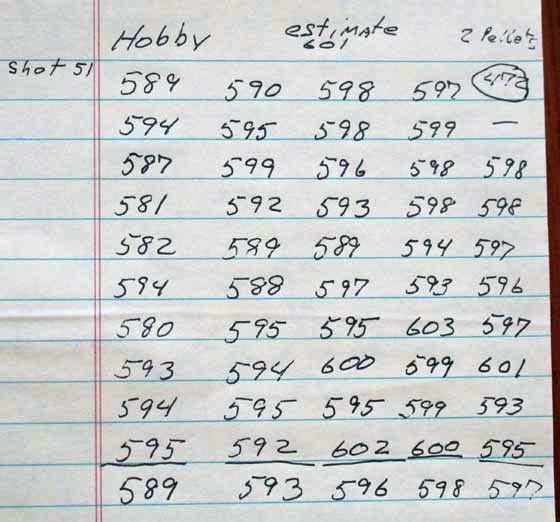 Hobby estimate 2 Pellets
601
Shot 51
589 590 598 597
594 595 598 599 —
587 599 596 598 598
581 592 593 598 598
582 589 589 594 597
594 588 597 593 596
580 595 595 603 597
593 594 600 599 601
594 595 595 599 593
595 592 602 600 595
589 593 596 598 597